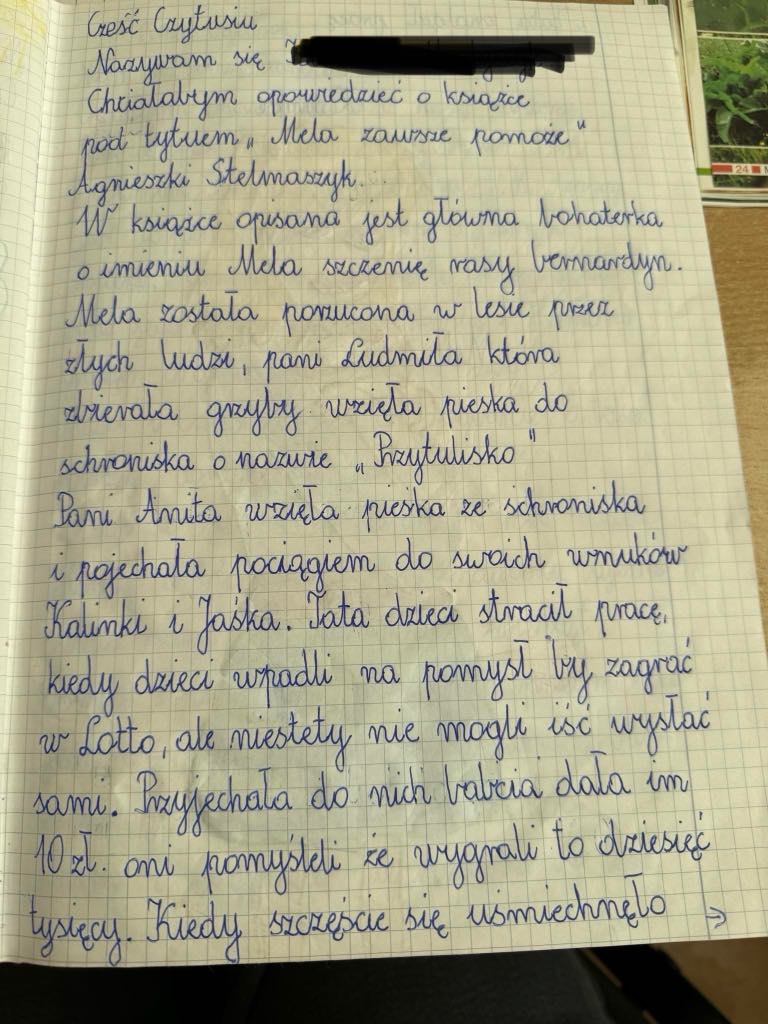 Cześć Czytusiu
Nazywam się
Chciałabym opowiedzieć o książce
pod tytuem „Mela zawsze pomoże"
Agnieszki Stelmaszyk.
W książce opisana jest główna bohaterka
o imieniu Mela szczenię rasy bernardyn.
Mela została porzucona w lesie przez
złych ludzi, pani Ludmiła która
zbierała grzyby wzięła pieska do
schroniska o nazwie „Przytulisko"
Pani Anita wzięła pieska ze schroniska
i pojechała pociągiem do swoich wnuków
Kalinki i Jaśka. Tata dzieci stracił pracę,
kiedy dzieci wpadli na pomysł by zagrać
w Lotto, ale niestety nie mogli iść wysłać
sami. Przyjechała do nich babcia dała im
10 zł. oni pomyśleli że wygrali to dziesięć
tysięcy. Kiedy szczęście się uśmiechnęło →
24